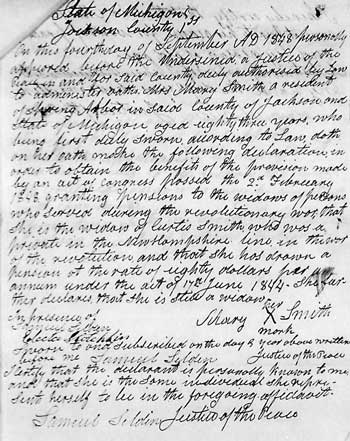 State of Michigan } ss
Jackson County
On this fourth day of September AD 1848 personally
appeared before the Undersined a Justice of the
Peace in and for said County duly authorised by Law
to administer oaths Mrs Mary Smith a resident
of Spring Arbor in Said County of Jackson and
State of Michigan aged eighty three years, who
being first duly sworn, acording to Law, doth
on her oath make the following declaration, in
order to obtain the benefit of the provision made
by an act of congress passed the 2d February
1848 granting pensions to the widows of persons
who served during the revolutionary war, that
she is the widow of Curtis Smith, who was a
private in the NewHampshire line in the war
of the revolution, and that she has drawn a
pension at the rate of eighty dollars per
annum under the act of 17th June 1844. She far
ther declares, that she is still a widow
In presence of
Mary X Smith
her
mark
Sworn & Subscribed on the day & year above written
before me Samuel Selden Justice of the Peace
I certify that the declarant is personally known to me
and that she is the same individual she repre-
sent herself to be in the foregoing affidavit.
Samuel Selden Justice of the Peace